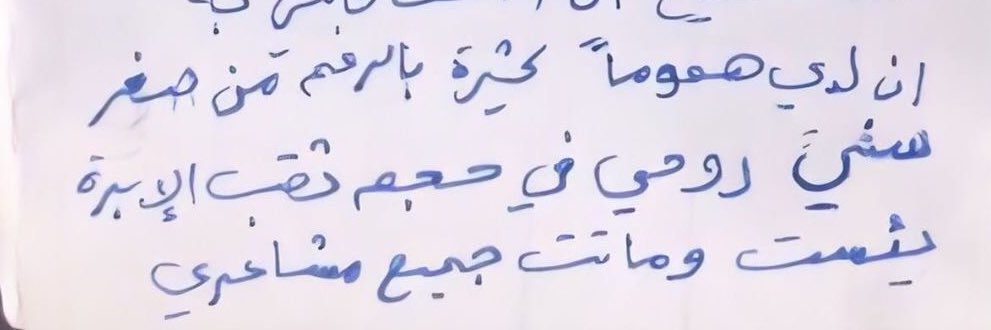 ان لدي هموماً كثيرة بالرغم من صغر
سني روحي في حجم ثقب الإبرة
يئست وماتت جميع مشاعري